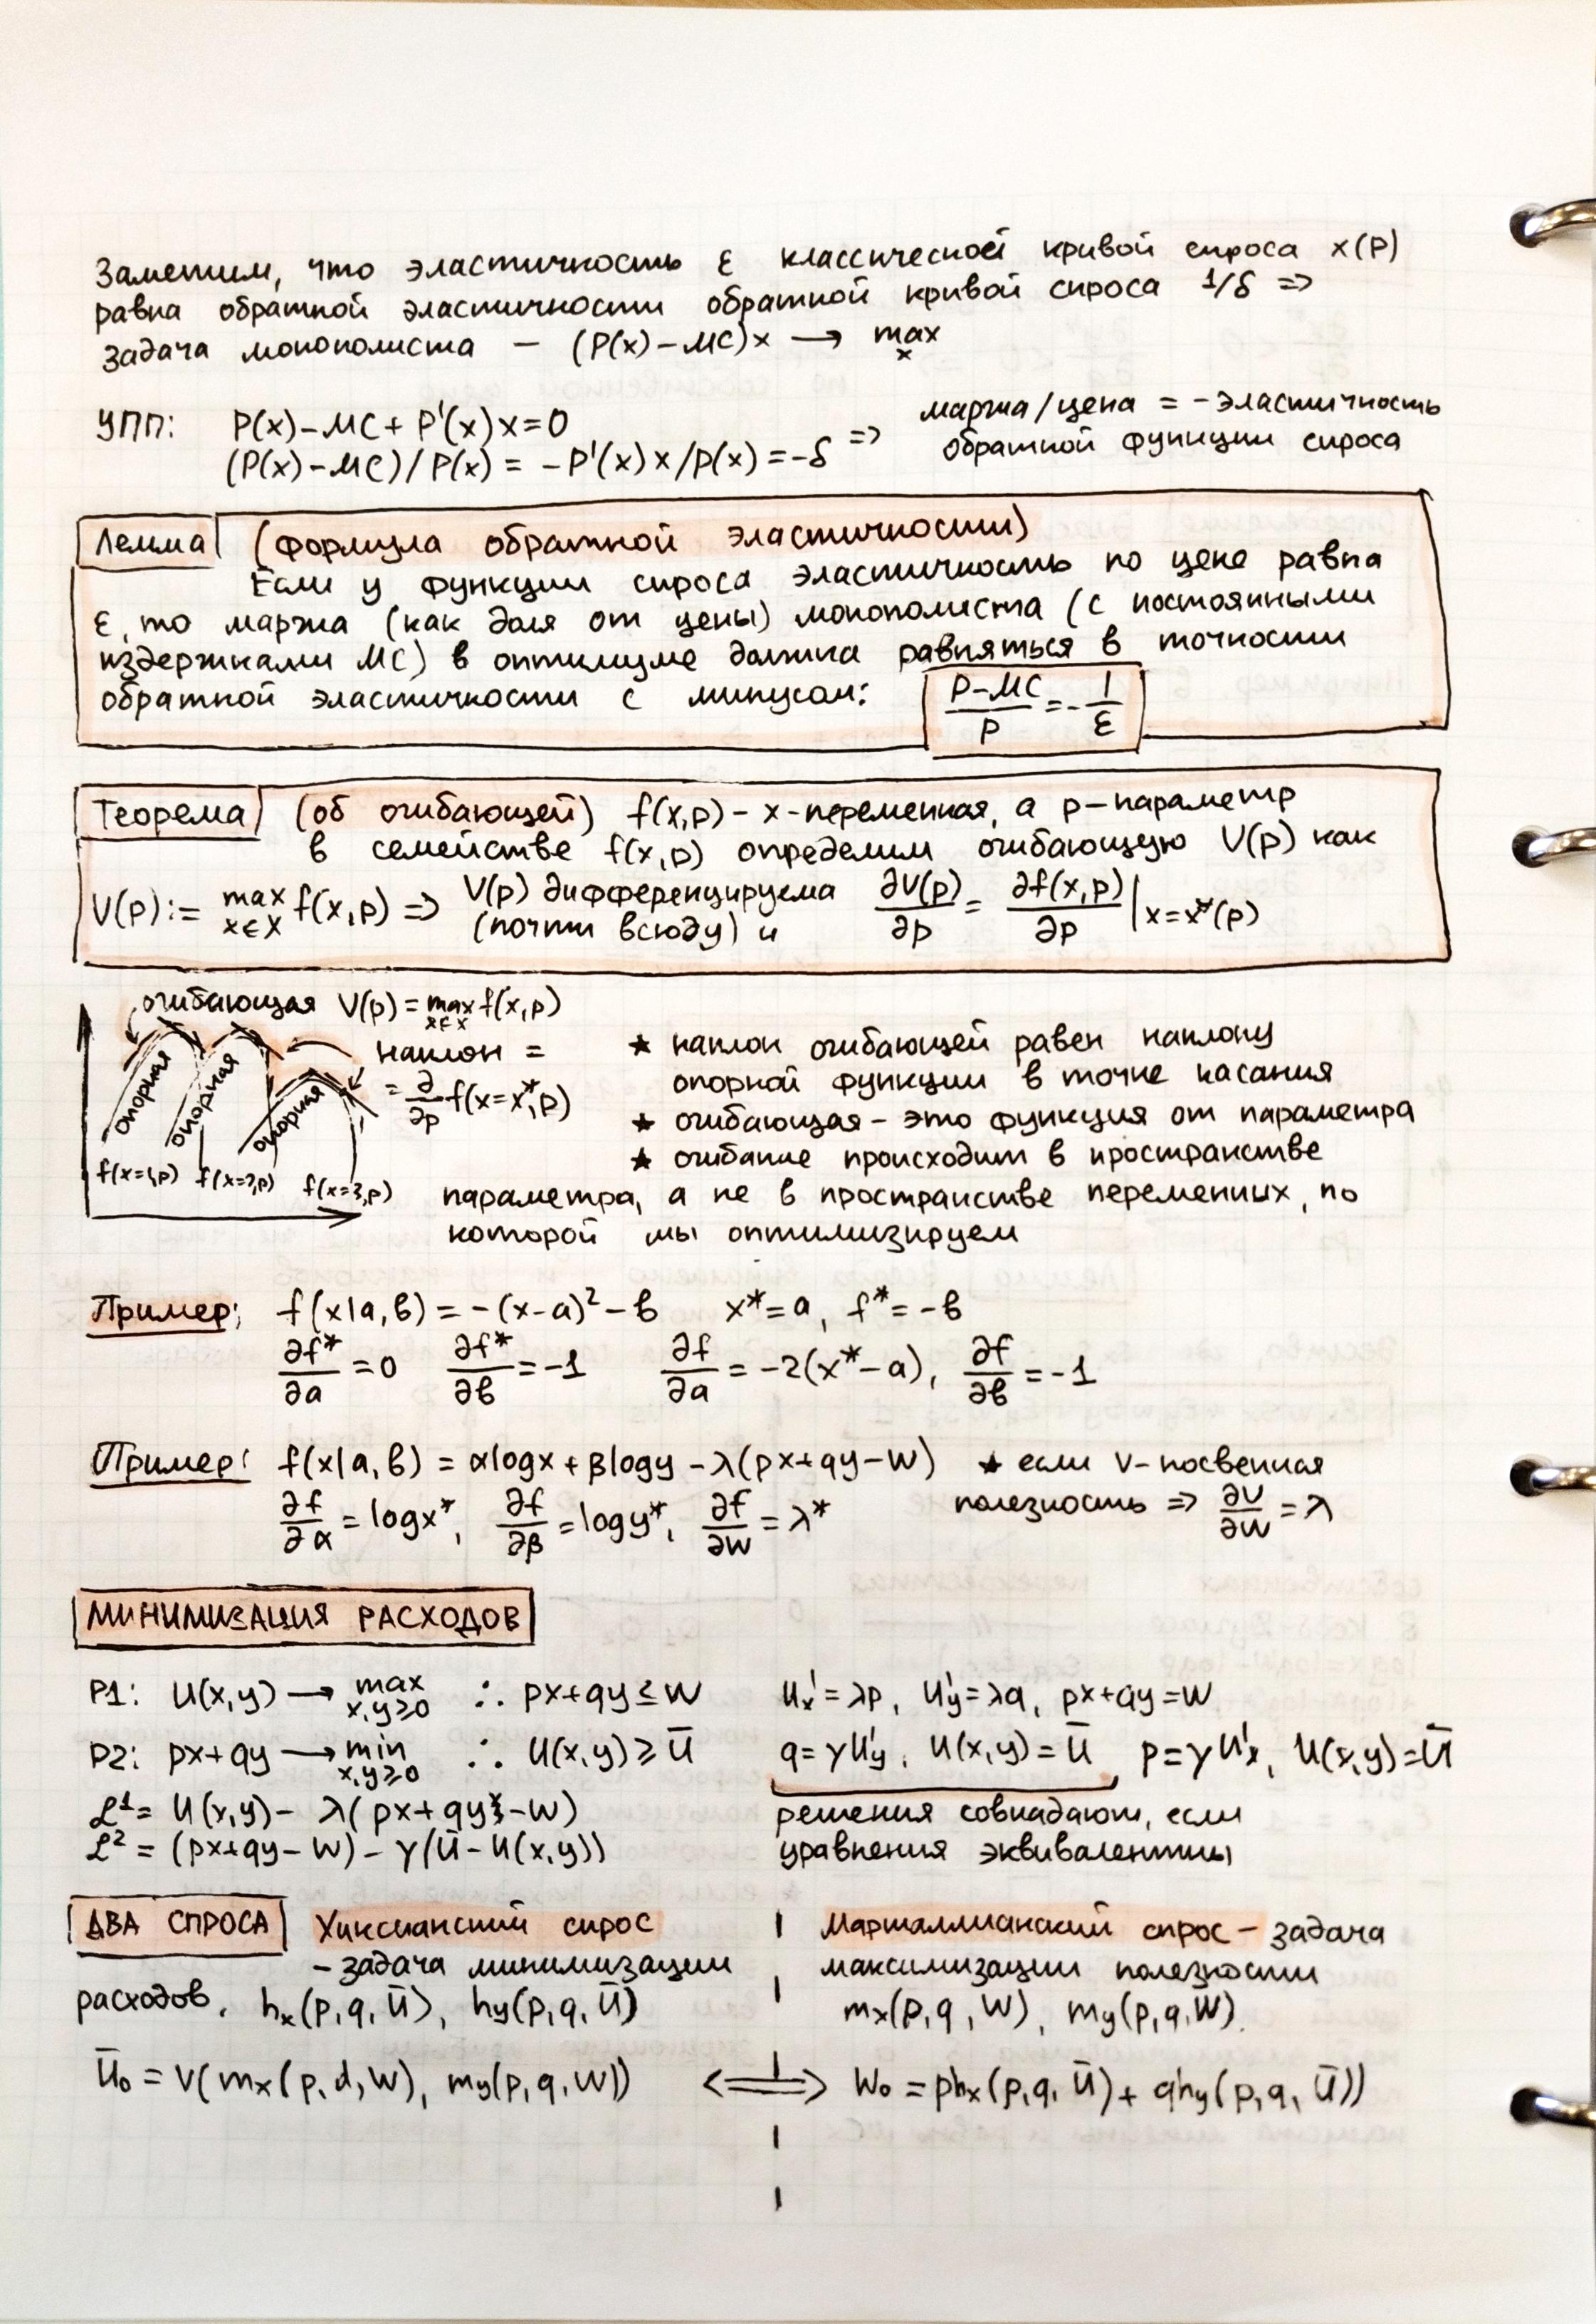 Заметим, что эластичность ε классической кривой спроса x(p)
равна обратной эластичности обратной кривой спроса 1/δ =>
Задача монополиста — (P(x)-MC)x → max
x
УПП: P(x)-MC+P'(x)x=0
(P(x)-MC)/P(x) = -P'(x)x/p(x) = -δ =>
маржа/цена = -эластичность
обратной функции спроса
Лемма (формула обратной эластичности)
Если у функции спроса эластичность по цене равна
ε, то маржа (как доля от цены) монополиста (с постоянными
издержками MC) в оптимуме должна равняться в точности
обратной эластичности с минусом: (P-MC)/P = -1/ε
Теорема (об огибающей) f(x,p) - x-переменная, а p-параметр
в семействе f(x,p) определим огибающую V(p) как
V(p):= max x∈X f(x,p) => V(p) дифференцируема (почти всюду) и ∂V(p)/∂p = ∂f(x,p)/∂p | x=x*(p)
огибающая V(p)=max x∈X f(x,p)
наклон =
= ∂/∂p f(x=x*,p)
опорная опорная опорная
f(x=1,p) f(x=2,p) f(x=3,p)
★ наклон огибающей равен наклону
опорной функции в точке касания
★ огибающая - это функция от параметра
★ огибание происходит в пространстве
параметра, а не в пространстве переменных, по
которой мы оптимизируем
Пример: f(x|a,b) = -(x-a)² - b x*=a, f*=-b
∂f*/∂a = 0 ∂f*/∂b = -1 ∂f/∂a = -2(x*-a), ∂f/∂b = -1
Пример: f(x|a,b) = αlogx + βlogy - λ(px+qy-W) ★ если V-косвенная
∂f/∂α = logx*, ∂f/∂β = logy*, ∂f/∂W = λ* полезность => ∂V/∂W = λ
МИНИМИЗАЦИЯ РАСХОДОВ
P1: U(x,y) → max x,y≥0 ∴ px+qy≤W U'x=λp, U'y=λq, px+qy=W
P2: px+qy → min x,y≥0 ∴ U(x,y)≥Ū q=γU'y, U(x,y)=Ū p=γU'x, U(x,y)=Ū
ℒ¹ = U(x,y) - λ(px+qy-W)
ℒ² = (px+qy-W) - γ(Ū-U(x,y))
решения совпадают, если
уравнения эквивалентны
ДВА СПРОСА Хиксианский спрос
- задача минимизации
расходов, hx(p,q,Ū), hy(p,q,Ū)
Маршаллианский спрос - задача
максимизации полезности
mx(p,q,W), my(p,q,W).
Ū₀ = V(mx(p,d,W), my(p,q,W)) <=> W₀ = phx(p,q,Ū) + qhy(p,q,Ū))